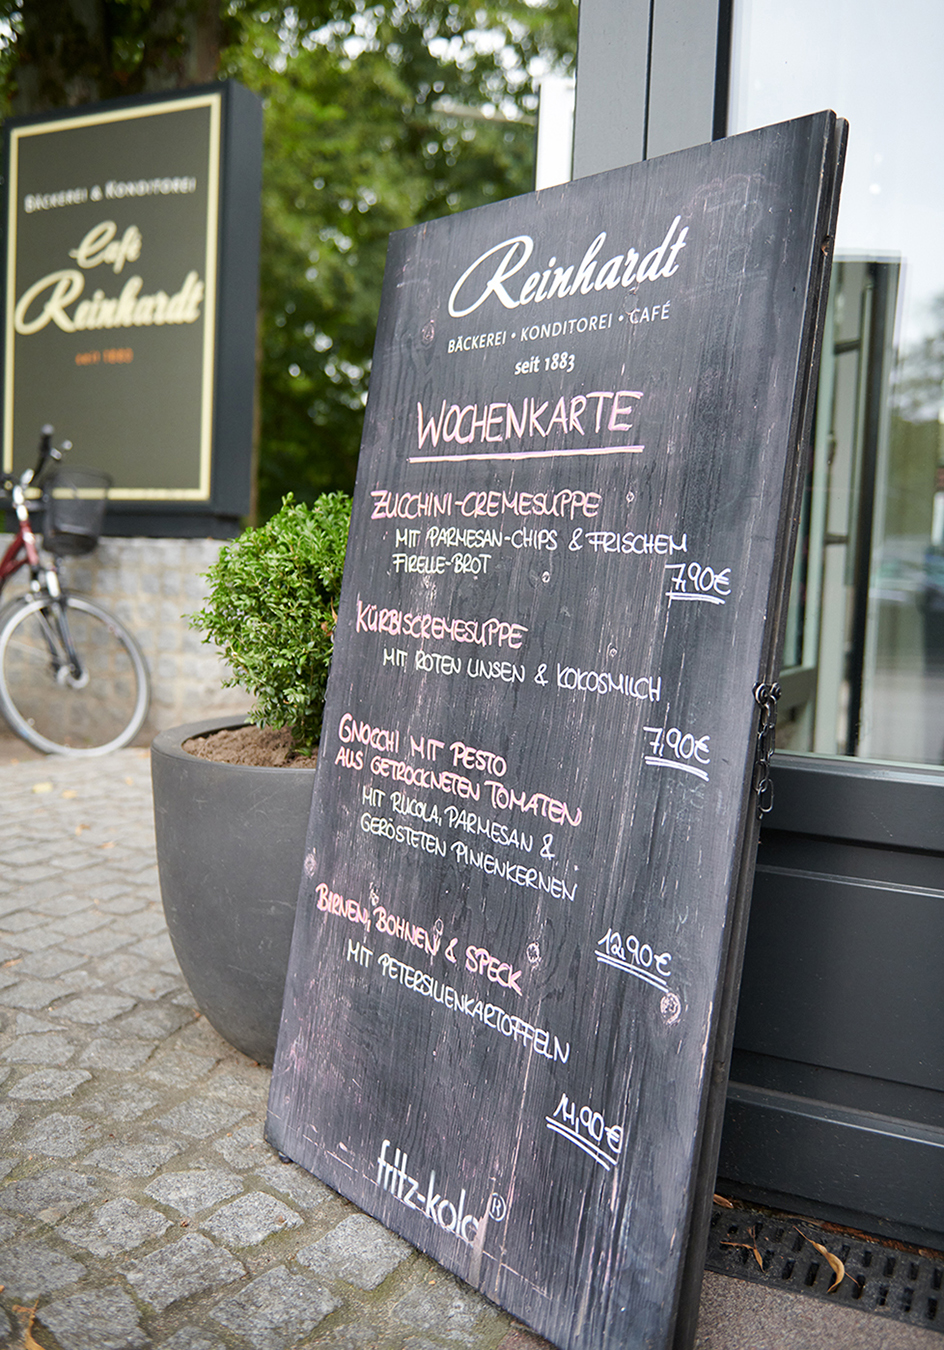 BÄCKEREI & KONDITOREI
Café
Reinhardt
seit 1883
Reinhardt
BÄCKEREI • KONDITOREI • CAFÉ
seit 1883
WOCHENKARTE
ZUCCHINI-CREMESUPPE
MIT PARMESAN-CHIPS & FRISCHEM
FIRELLE-BROT
7,90€
KÜRBISCREMESUPPE
MIT ROTEN LINSEN & KOKOSMILCH
7,90€
GNOCCHI MIT PESTO
AUS GETROCKNETEN TOMATEN
MIT RUCOLA, PARMESAN &
GERÖSTETEN PINIENKERNEN
12,90€
BIRNEN, BOHNEN & SPECK
MIT PETERSILIENKARTOFFELN
14,90€
fritz-kola®